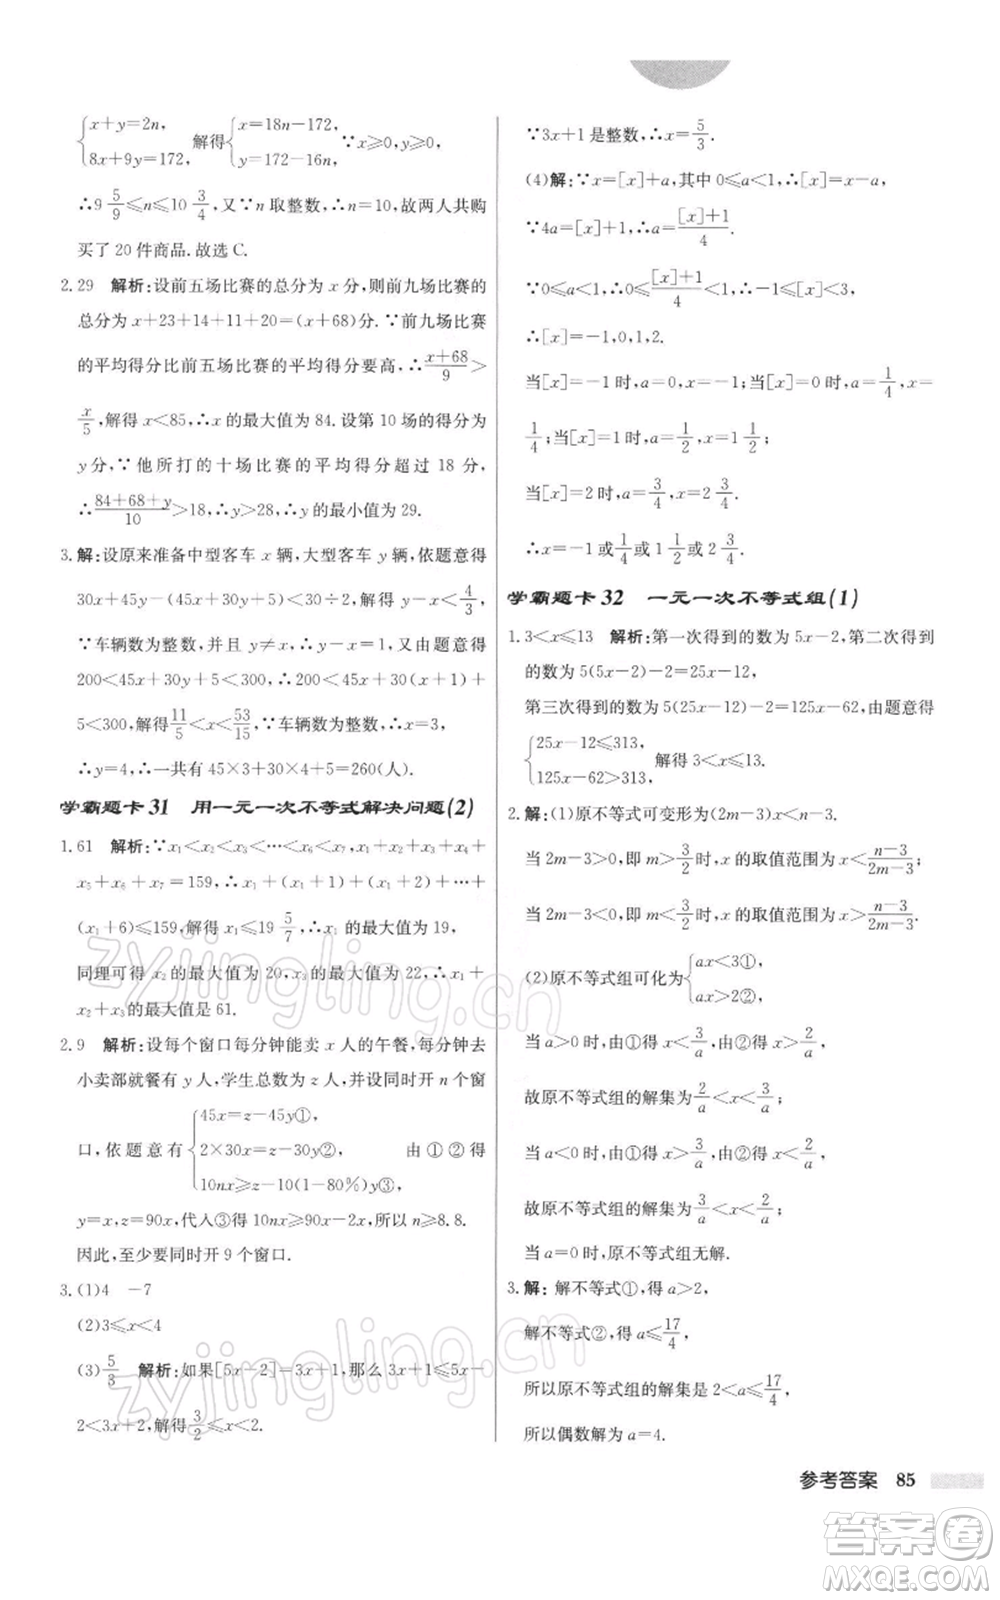 {x+y=2n, 8x+9y=172, 解得{x=18n-172, y=172-16n, ∵x≥0,y≥0,
∴9 5/9≤n≤10 3/4,又∵n取整数,∴n=10,故两人共购
买了20件商品.故选C.
2.29 解析:设前五场比赛的总分为x分,则前九场比赛的
总分为x+23+14+11+20=(x+68)分.∵前九场比赛
的平均得分比前五场比赛的平均得分要高,∴(x+68)/9>
x/5,解得x<85,∴x的最大值为84.设第10场的得分为
y分,∵他所打的十场比赛的平均得分超过18分,
∴(84+68+y)/10>18,∴y>28,∴y的最小值为29.
3.解:设原来准备中型客车x辆,大型客车y辆,依题意得
30x+45y-(45x+30y+5)<30÷2,解得y-x<4/3,
∵车辆数为整数,且用车不是单一车型,∴y=x+1.∵
200<45x+30y+5<300,∴200<45x+30(x+1)+
5<300,解得11/5<x<53/15,∵车辆数为整数,∴x=3,
∴y=4,∴一共有45×3+30×4+5=260(人).
学霸题卡31 用一元一次不等式解决问题(2)
1.61 解析:∵x₁<x₂<x₃<⋯<x₇,x₁+x₂+x₃+x₄+
x₅+x₆+x₇=159,∴x₁+(x₁+1)+(x₁+2)+⋯+
(x₁+6)≤159,解得x₁≤19 5/7,∴x₁的最大值为19,
同理可得x₂的最大值为20,x₃的最大值为22,∴x₁+
x₂+x₃的最大值是61.
2.9 解析:设每个窗口每分钟能卖x人的午餐,每分钟去
小卖部就餐有y人,学生总数为z人,并设同时开n个窗
口,依题意有{45x=z-45y①, 2×30x=z-30y②, 10nx≥z-10(1-80%)y③, 由①②得
y=x,z=90x,代入③得10nx≥90x-2x,所以n≥8.8.
因此,至少要同时开9个窗口.
3.(1)4 -7
(2)3≤x<4
(3)5/3 解析:如果[5x-2]=3x+1,那么3x+1≤5x-
2<3x+2,解得3/2≤x<2.
∵3x+1是整数,∴x=5/3.
(4)解:∵x=[x]+a,其中0≤a<1,∴[x]=x-a,
∵4a=[x]+1,∴a=([x]+1)/4.
∵0≤a<1,∴0≤([x]+1)/4<1,∴-1≤[x]<3,
∴[x]=-1,0,1,2.
当[x]=-1时,a=0,x=-1;当[x]=0时,a=1/4,x=
1/4;当[x]=1时,a=1/2,x=1 1/2;
当[x]=2时,a=3/4,x=2 3/4.
∴x=-1或1/4或1 1/2或2 3/4.
学霸题卡32 一元一次不等式组(1)
1.3<x≤13 解析:第一次得到的数为5x-2,第二次得到
的数为5(5x-2)-2=25x-12,
第三次得到的数为5(25x-12)-2=125x-62,由题意得
{25x-12≤313, 125x-62>313, 解得3<x≤13.
2.解:(1)原不等式可变形为(2m-3)x<n-3.
当2m-3>0,即m>3/2时,x的取值范围为x<(n-3)/(2m-3);
当2m-3<0,即m<3/2时,x的取值范围为x>(n-3)/(2m-3).
(2)原不等式组可化为{ax<3①, ax>2②,
当a>0时,由①得x<3/a,由②得x>2/a,
故原不等式组的解集为2/a<x<3/a;
当a<0时,由①得x>3/a,由②得x<2/a,
故原不等式组的解集为3/a<x<2/a;
当a=0时,原不等式组无解.
3.解:解不等式①,得a>2,
解不等式②,得a≤17/4,
所以原不等式组的解集是2<a≤17/4,
所以偶数解为a=4.
参考答案 85
zyjingling.cn
zyjingling.cn
答案卷
MXQE.COM